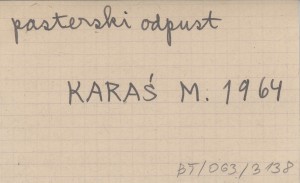 pasterski odpust
KARAŚ M. 1964
BT/063/3138